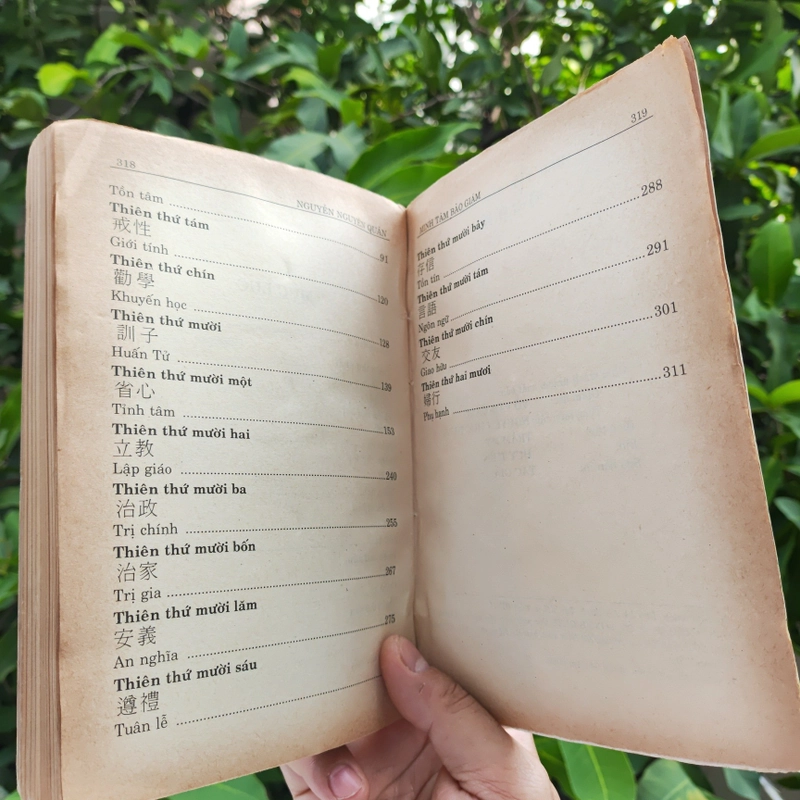 318
NGUYÊN NGUYÊN QUÂN
Tồn tâm
Thiên thứ tám
戒性
Giới tính ........ 91
Thiên thứ chín
勸學
Khuyến học ........ 120
Thiên thứ mười
訓子
Huấn Tử ........ 128
Thiên thứ mười một
省心
Tỉnh tâm ........ 139
Thiên thứ mười hai
立教 ........ 153
Lập giáo ........ 240
Thiên thứ mười ba
治政
Trị chính ........ 255
Thiên thứ mười bốn
治家
Trị gia ........ 267
Thiên thứ mười lăm
安義
An nghĩa ........ 275
Thiên thứ mười sáu
遵禮
Tuân lễ
319
MINH TÂM BẢO GIÁM
Thiên thứ mười bảy
存信
Tồn tín ........ 288
Thiên thứ mười tám
言語
Ngôn ngữ ........ 291
Thiên thứ mười chín
交友
Giao hữu ........ 301
Thiên thứ hai mươi
婦行
Phụ hạnh ........ 311